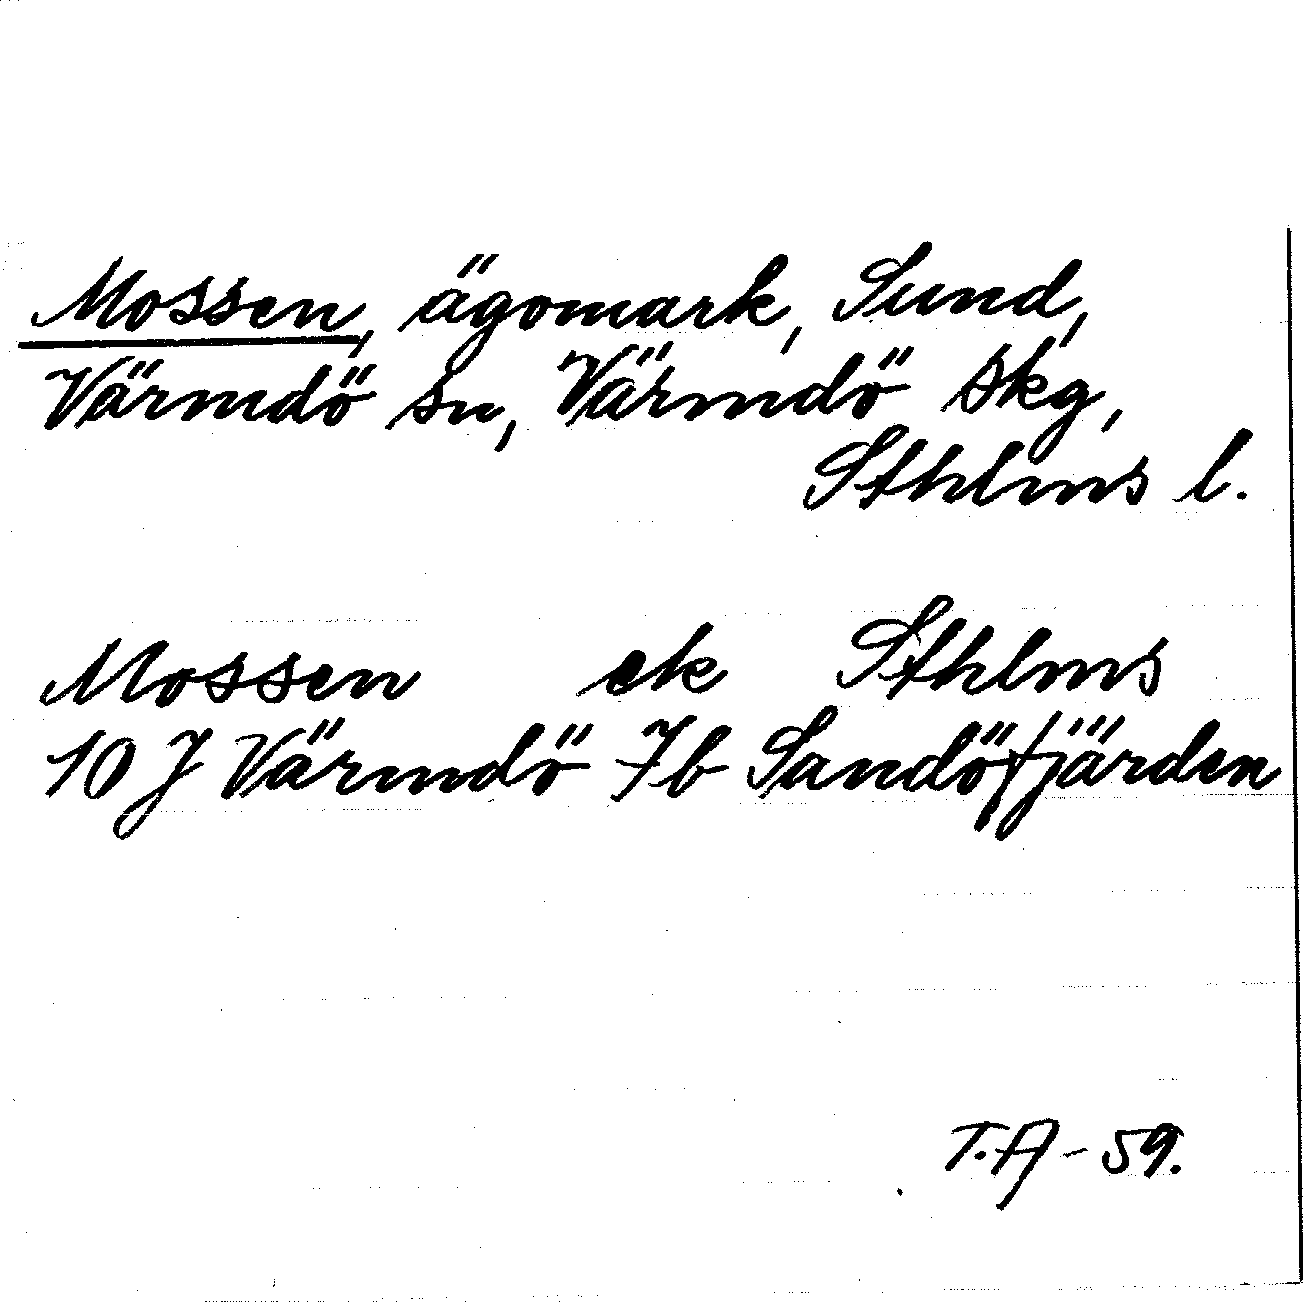 Mossen, ägomark, Sund,
Värmdö sn, Värmdö skg,
Sthlms l.
Mossen ek Sthlms
10 J Värmdö 7b Sandöfjärden
T.A - 59.